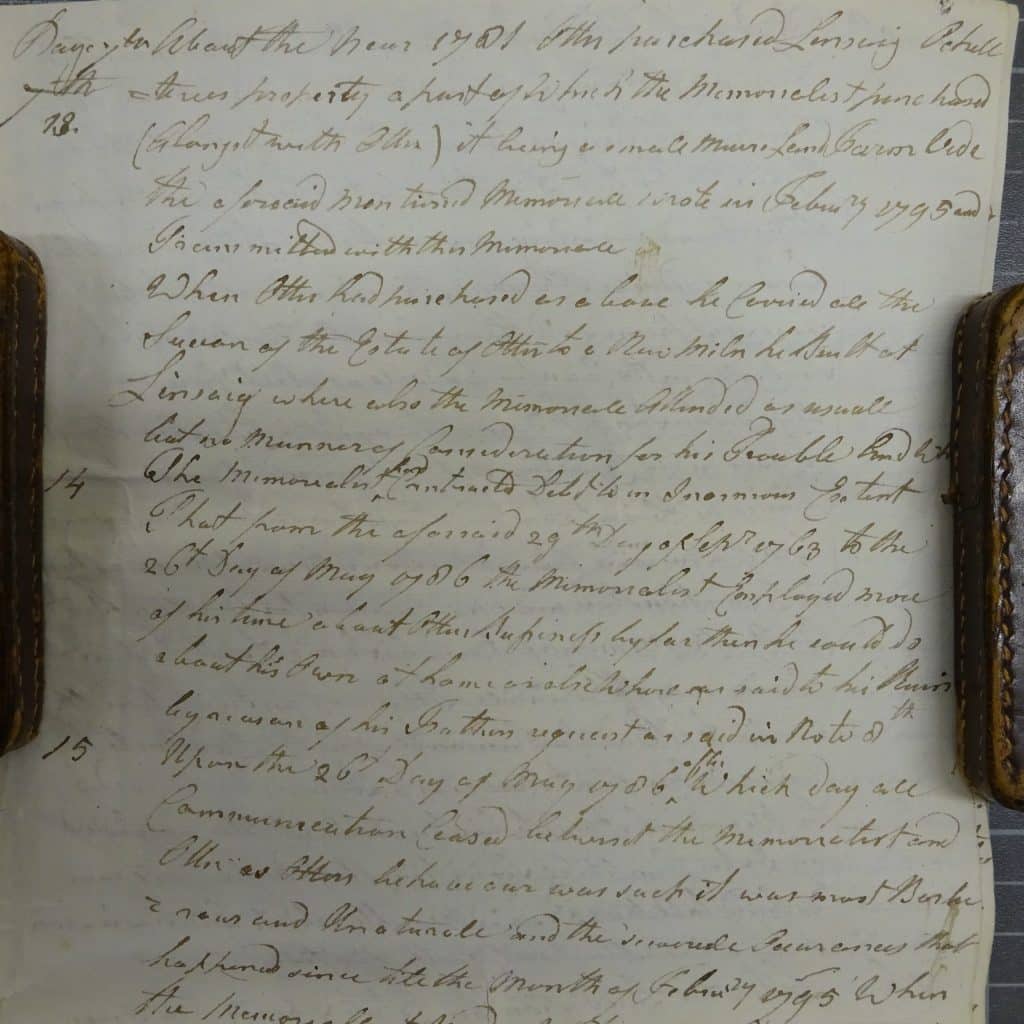 About the Year 1781 Otter purchased Linsaig
=teres property a part of Which the Memorialist purchased
13. (Alongst with Otter) it being a small Muir Land Farm Vide
the aforesaid mentioned Memoriall wrote in Februry 1795 and
Transmitted with this Memoriall
When Otter had purchased as above he Carried all the
of the Estate of Otter to a New Miln he Built at
Linsaig where also the Memoriall Attended as usuall
but no Manner of Consideration for his Trouble And
14 The Memorialist had Contracted Debt to an Inormous Extent
That from the aforsaid 29th Day of Sepr 1763 to the
26t Day of May 1786 the Memorialist Employed more
of his time about Otters Business by far then he could do
about his Own at home or elsewhere as said to his Ruin
by reason of his Fathers request as said in Note 8th
15 Upon the 26t Day of May 1786 after Which day all
Communication Ceased betwixt the Memorialist and
Otter as Otters behaveour was such it was most Barba
=rous and Unaturale and the severale that
happened since till the Month of Februry 1795 When
the Memoriall